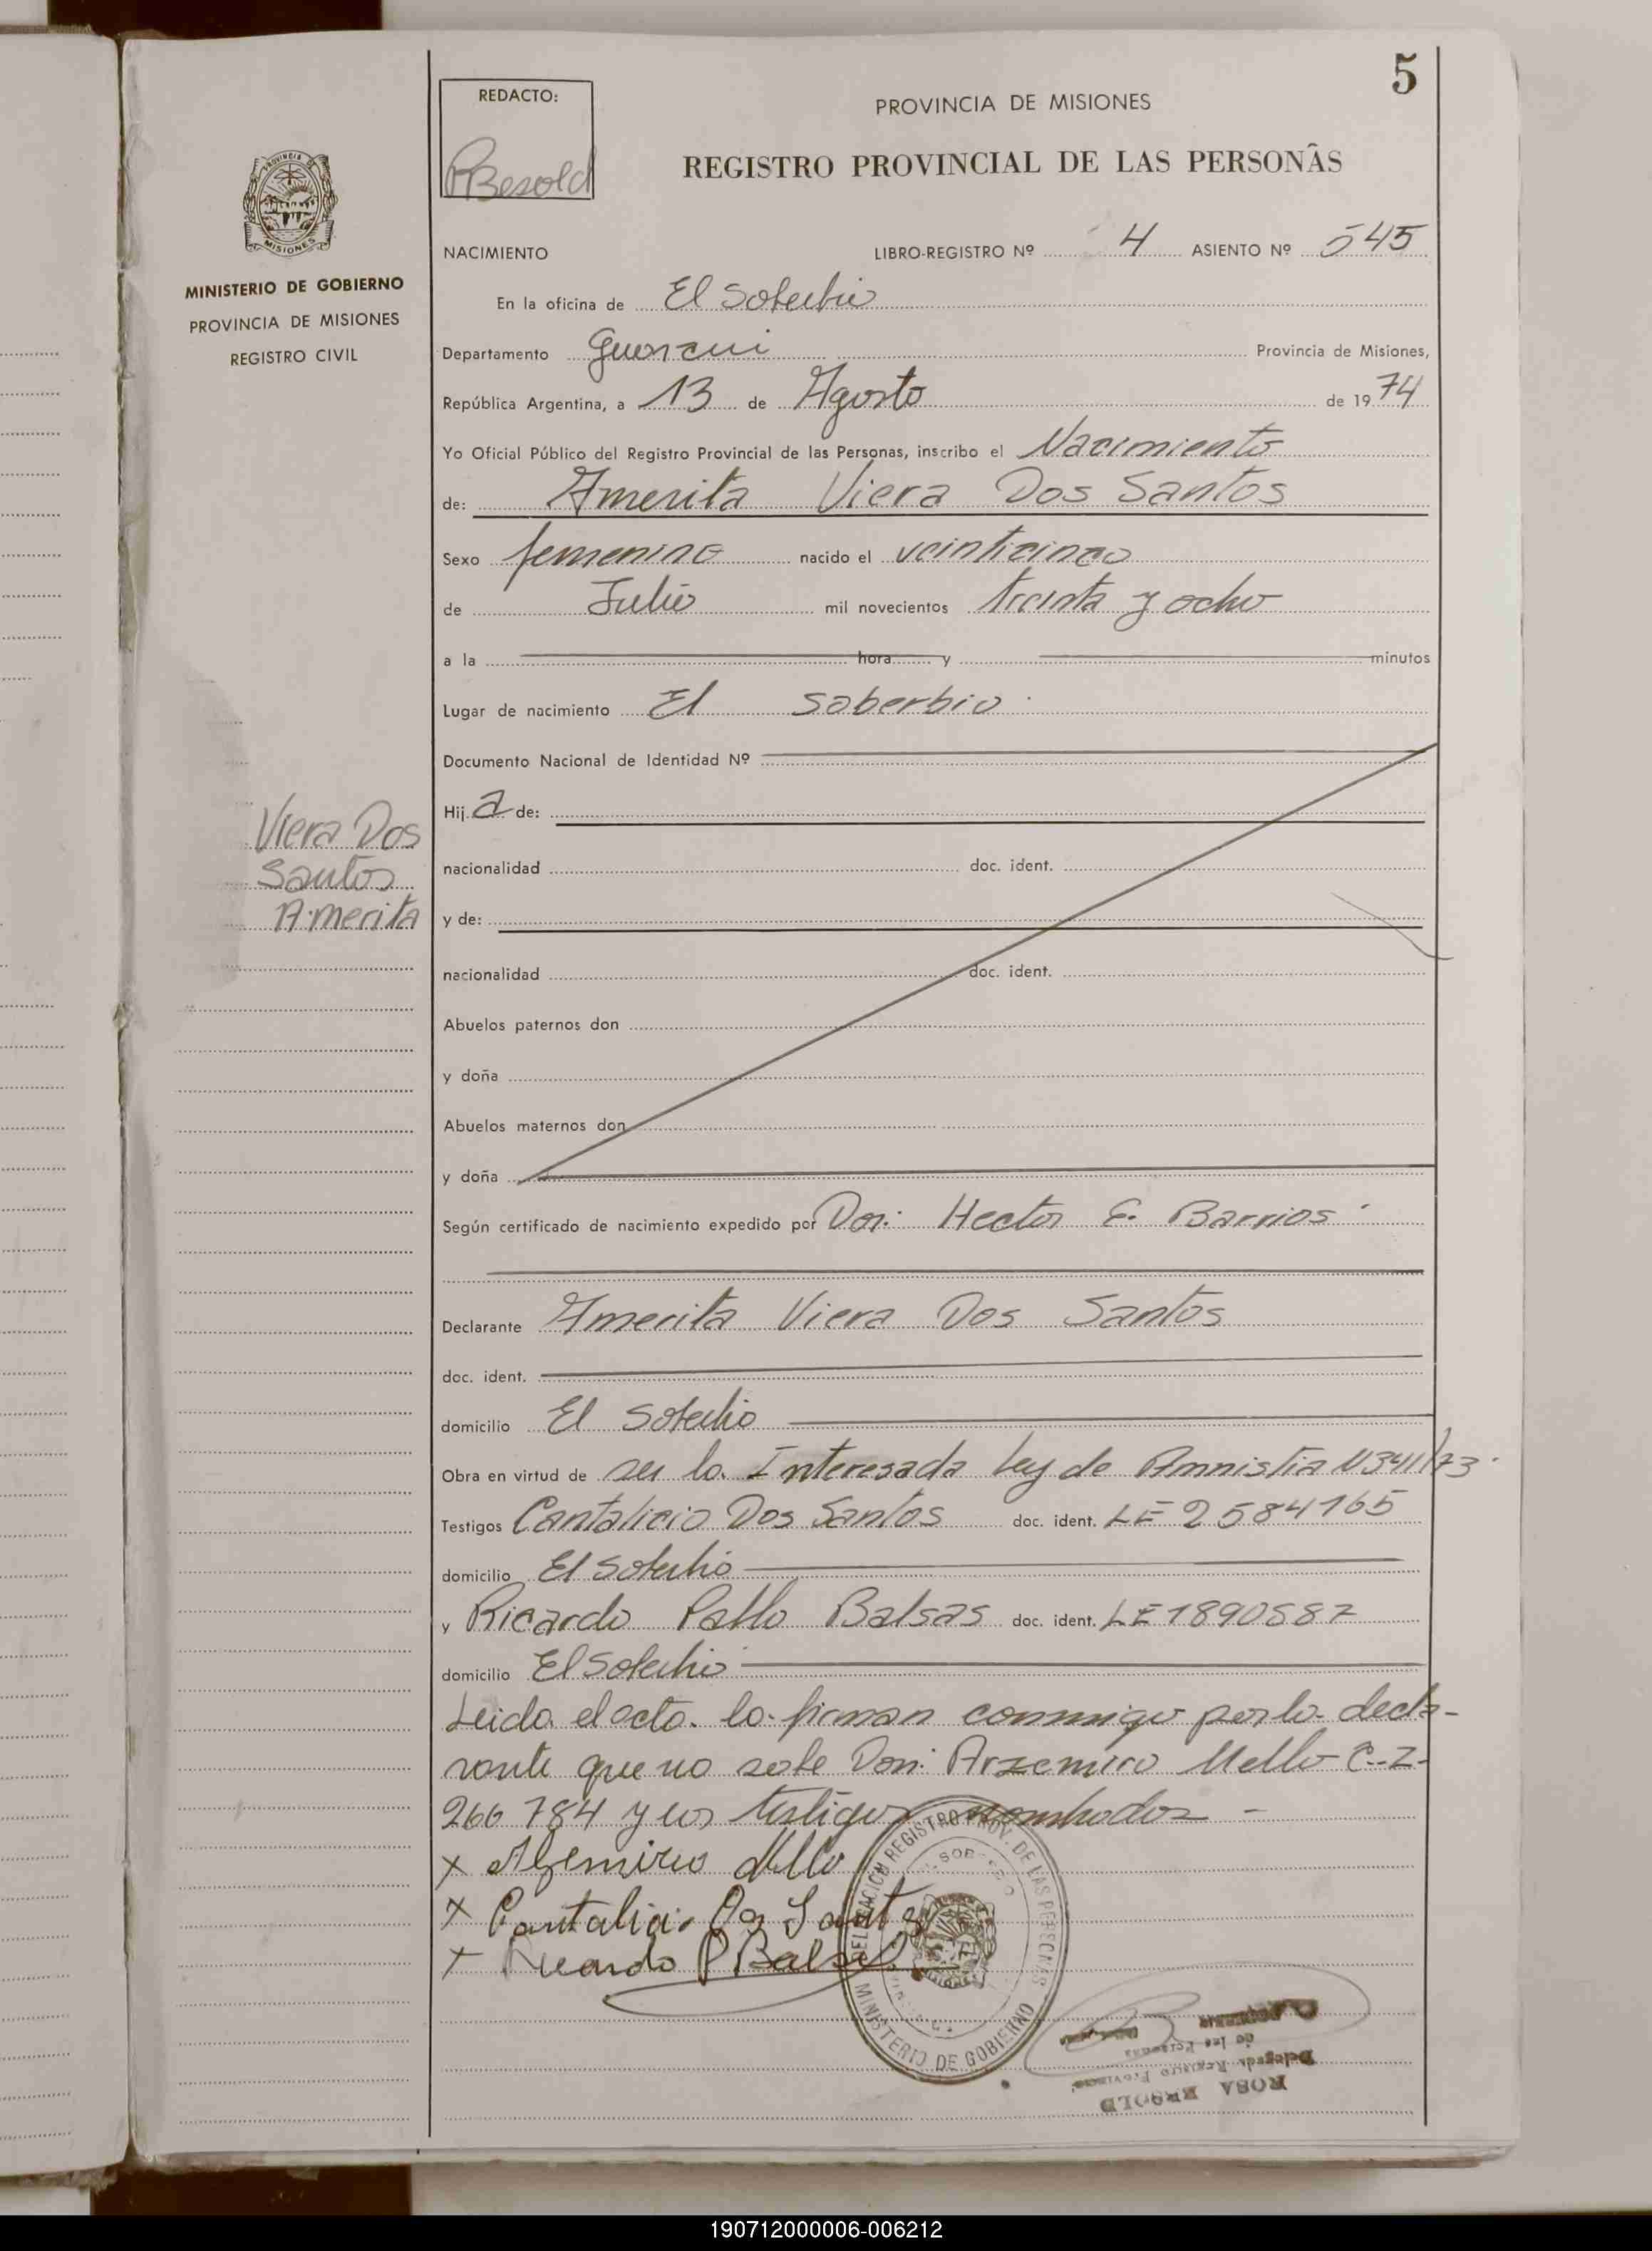 5
REDACTO:
PROVINCIA DE MISIONES
RBesold
REGISTRO PROVINCIAL DE LAS PERSONAS
NACIMIENTO LIBRO-REGISTRO Nº 4 ASIENTO Nº 545
MINISTERIO DE GOBIERNO
PROVINCIA DE MISIONES
REGISTRO CIVIL
En la oficina de El Soberbio
Departamento Guarani Provincia de Misiones,
República Argentina, a 13 de Agosto de 1974
Yo Oficial Público del Registro Provincial de las Personas, inscribo el Nacimiento
de: Amerita Viera Dos Santos
Sexo femenino nacido el veinticinco
de Julio mil novecientos treinta y ocho
a la hora y minutos
Lugar de nacimiento El Soberbio
Documento Nacional de Identidad Nº
Viera Dos
Santos
Amerita
Hija de:
nacionalidad doc. ident.
y de:
nacionalidad doc. ident.
Abuelos paternos don
y doña
Abuelos maternos don
y doña
Según certificado de nacimiento expedido por Don: Hector E. Barrios
Declarante Amerita Viera Dos Santos
doc. ident.
domicilio El Soberbio
Obra en virtud de ser la Interesada Ley de Amnistia N341/73
Testigos Cantalicio Dos Santos doc. ident. LE 2584165
domicilio El Soberbio
y Ricardo Pablo Balsas doc. ident. LE 1890587
domicilio El Soberbio
Leida el acta la firman conmigo por la decla-
rante que no sabe Don: Arzemiro Mello C-I-
266784 y los testigos nombrados -
x Mello
x Dos Santos
x Ricardo P Balsas
DELEGACION REGISTRO PROV. DE LAS PERSONAS
MINISTERIO DE GOBIERNO
ROSA BESOLD
Delegada Registro Provincial
de las Personas
190712000006-006212